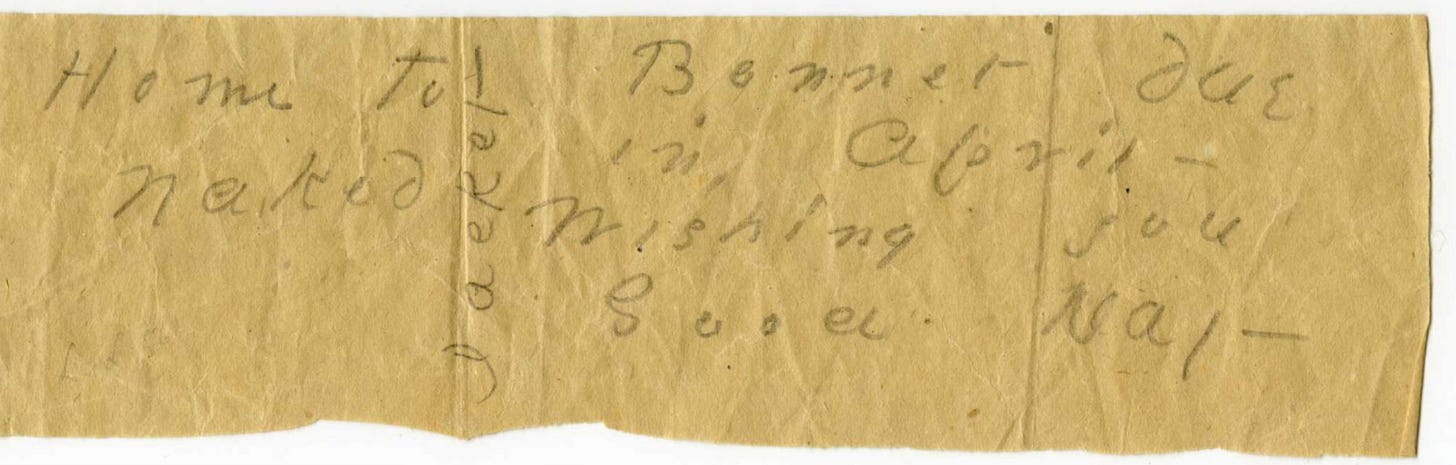 Home to
naked
Jacket
Bonnet due
in April —
Wishing you
Good